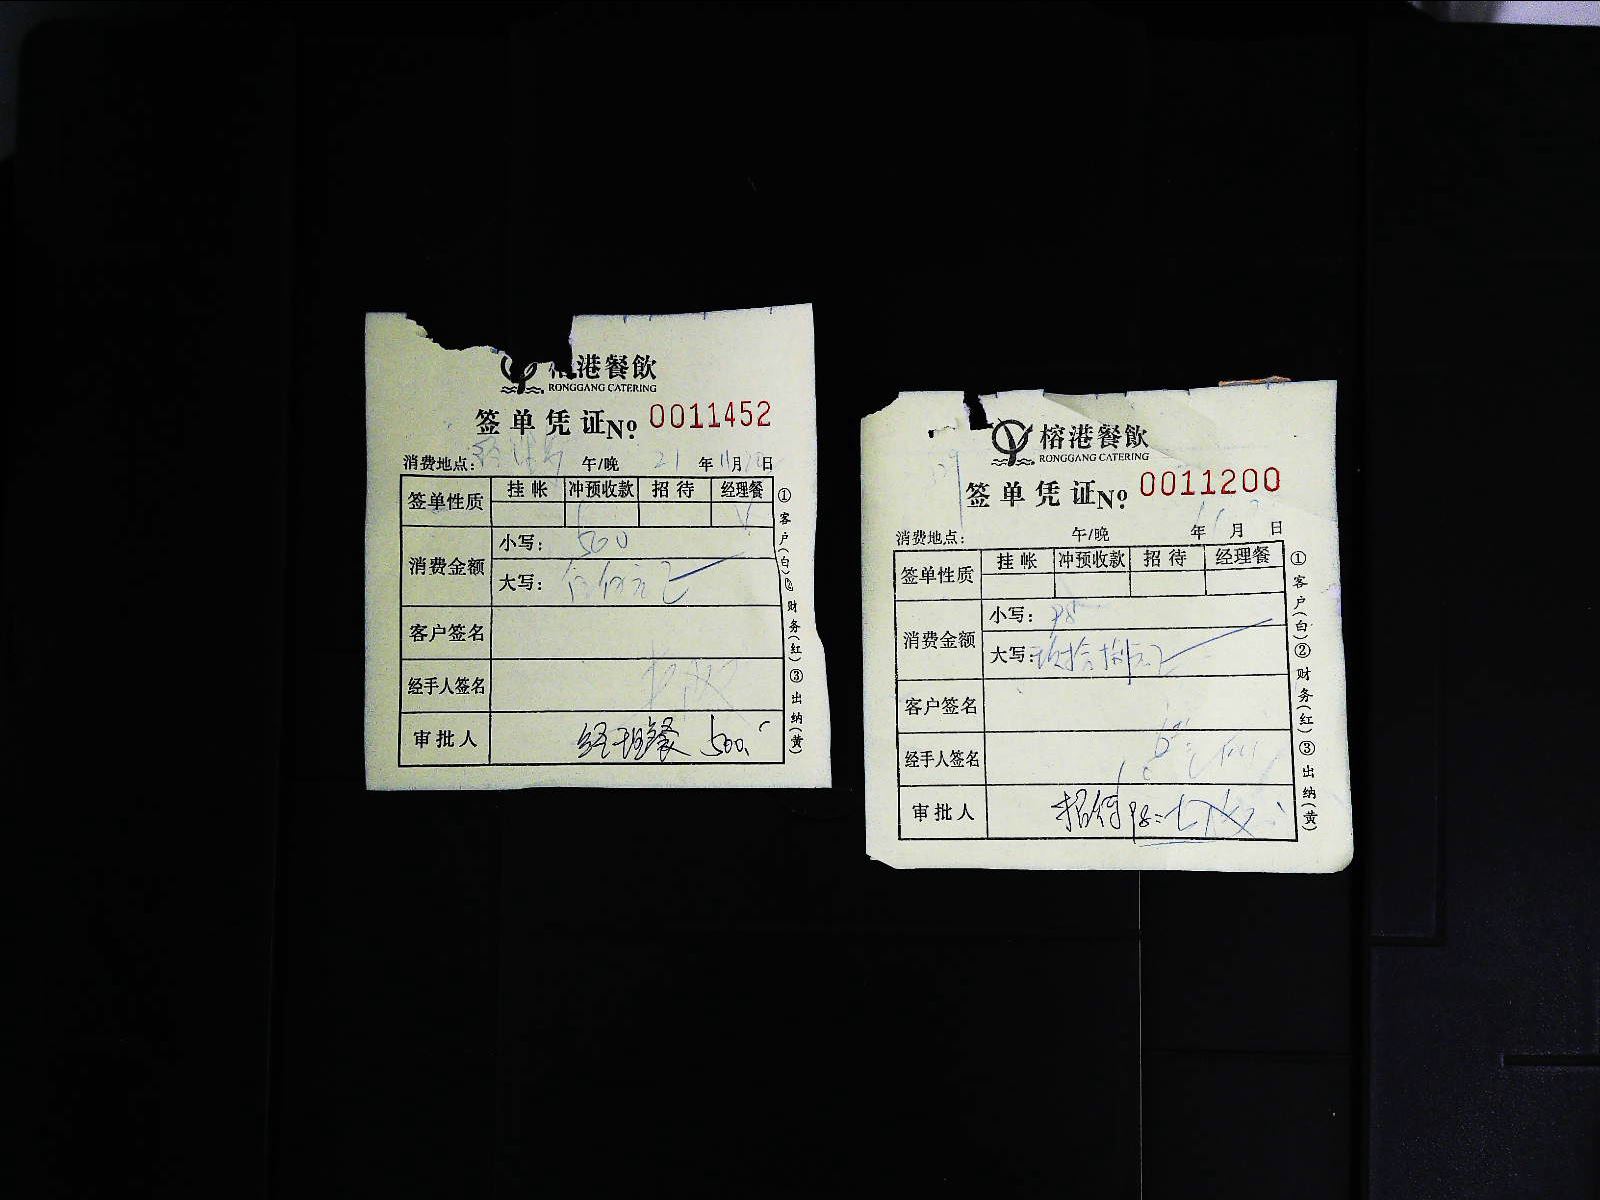 港餐飲
RONGGANG CATERING
签单凭证No. 0011452
消费地点: 午/晚 21年11月日
签单性质 挂帐 冲预收款 招待 经理餐
消费金额 小写: 500
大写: 伍佰元
客户签名
经手人签名
审批人 经理餐 500.
①客户(白)②财务(红)③出纳(黄)
榕港餐飲
RONGGANG CATERING
签单凭证No. 0011200
消费地点: 午/晚 年 月 日
签单性质 挂帐 冲预收款 招待 经理餐
消费金额 小写: 98
大写: 玖拾捌元
客户签名
经手人签名
审批人 招待 98
①客户(白)②财务(红)③出纳(黄)